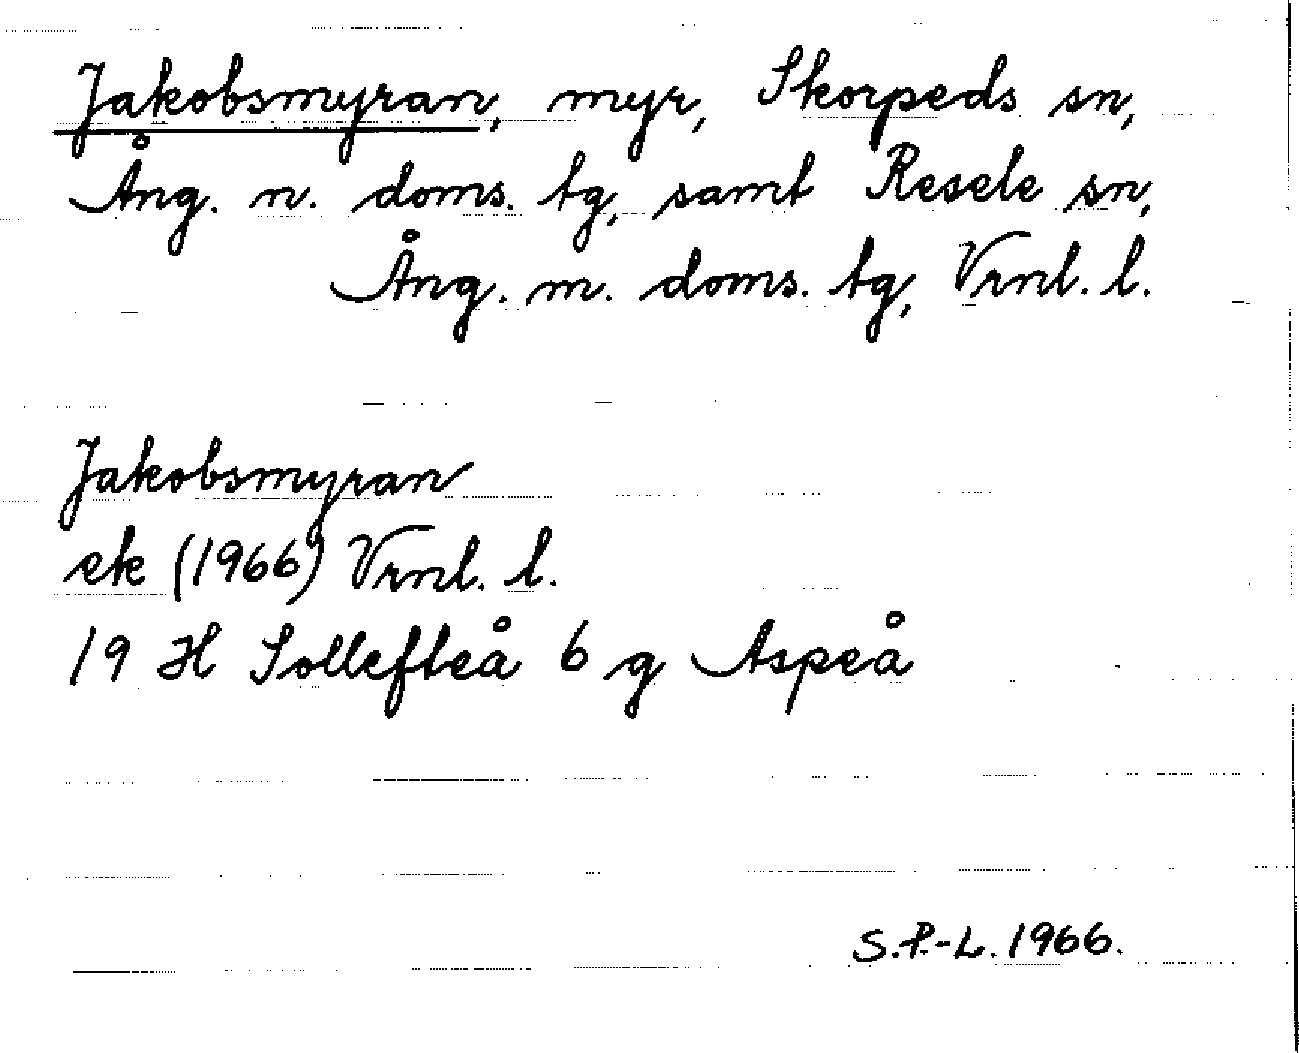 Jakobsmyran, myr, Skorpeds sn,
Ång. n. doms. tg, samt Resele sn,
Ång. m. doms. tg, Vrnl. l.
Jakobsmyran
ek (1966) Vrnl. l.
19 H Sollefteå 6 g Aspeå
S.P.-L. 1966.